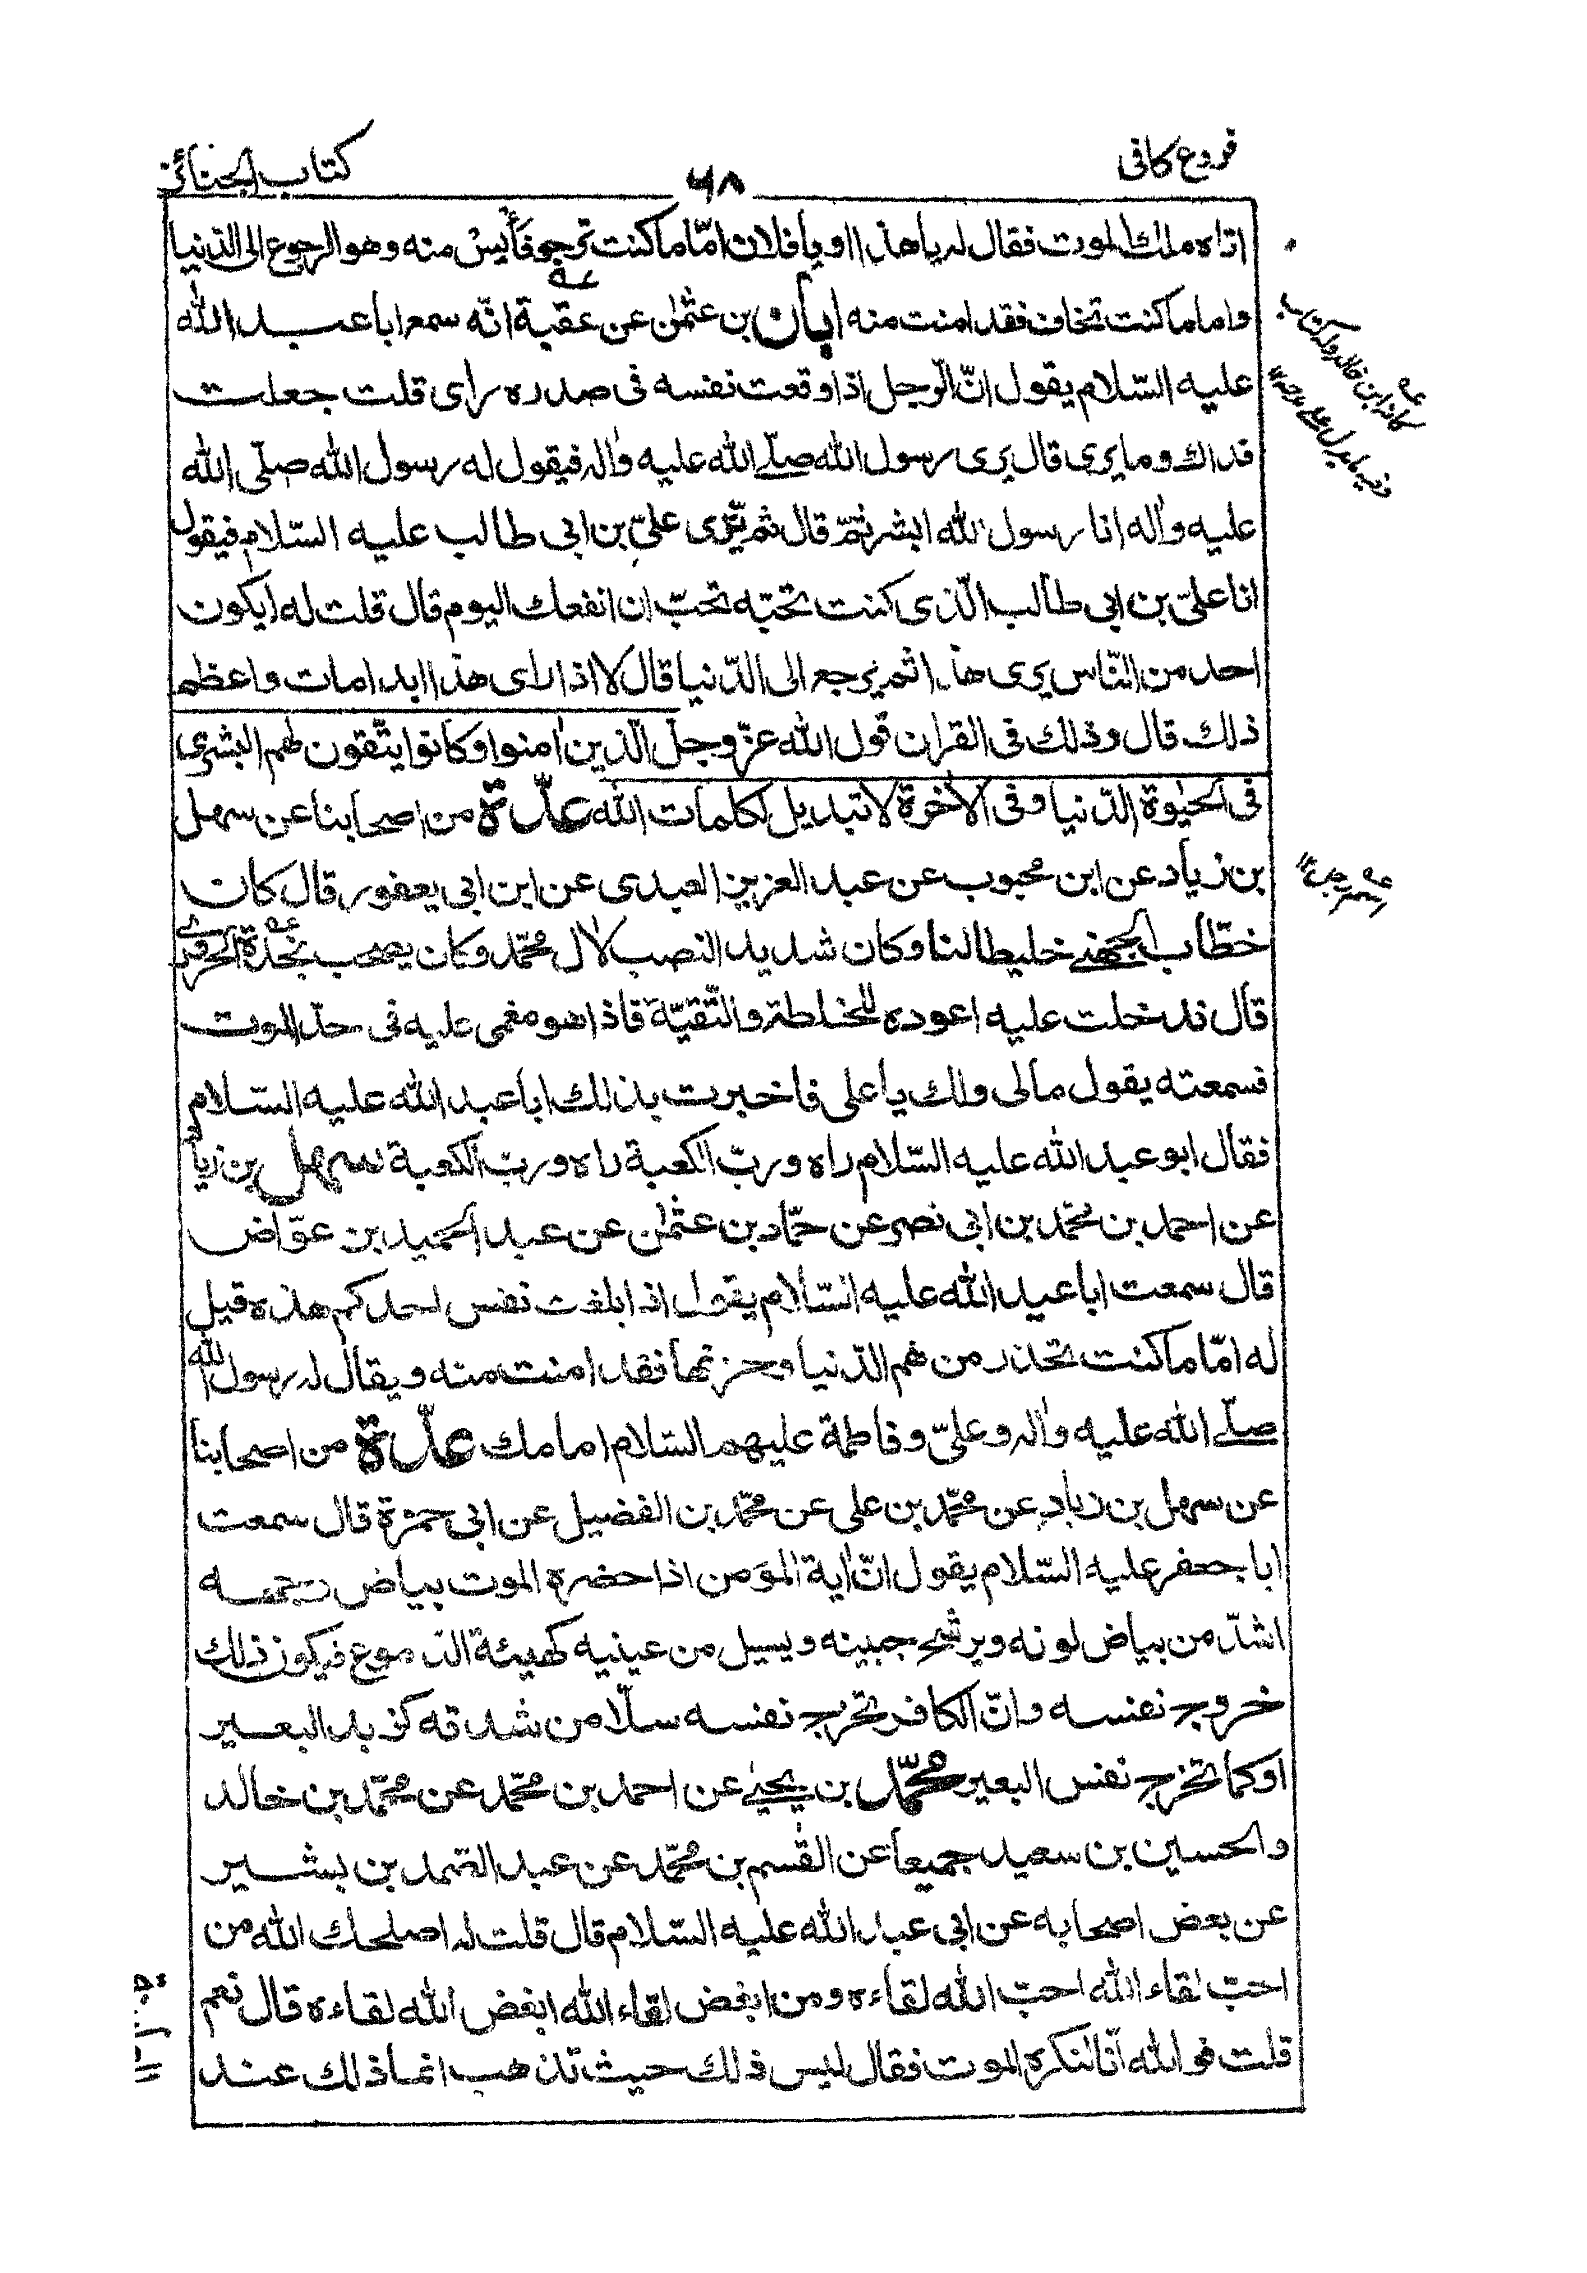 فروع كافى
٦٨
كتاب الجنائز
اتاه ملك الموت فقال له يا هذا او يا فلان امّا ما كنت ترجو فأيس منه وهو الرجوع الى الدنيا
واما ما كنت تخاف فقد امنت منه ابان بن عثمٰن عن عقبة انّه سمع ابا عبد الله
عليه السّلام يقول انّ الرّجل اذا وقعت نفسه فى صدره راى قلت جعلت
فداك وما يرى قال يرى رسول الله صلّى الله عليه واٰله فيقول له رسول الله صلّى الله
عليه واٰله انا رسول الله ابشر ثمّ قال ثم يرى علىّ بن ابى طالب عليه السّلام فيقول
انا علىّ بن ابى طالب الّذى كنت تحبّه تحبّ ان انفعك اليوم قال قلت له ايكون
احد من النّاس يرى هذا ثم يرجع الى الدّنيا قال لا اذا راى هذا ابدا مات واعظم
ذلك قال وذلك فى القران قول الله عزّ وجلّ الّذين اٰمنوا وكانوا يتّقون لهم البشرى
فى الحيٰوة الدّنيا وفى الاٰخرة لا تبديل لكلمات الله عدّة من اصحابنا عن سهل
بن زياد عن ابن محبوب عن عبد العزيز العبدى عن ابن ابى يعفور قال كان
خطّاب الجهنى خليطا لنا وكان شديد النصب لاٰل محمّد وكان يصحب نجدة الحرورى
قال فدخلت عليه اعوده للخلطة والتّقيّة فاذا هو مغمى عليه فى حدّ الموت
فسمعته يقول مالى ولك يا على فاخبرت بذلك ابا عبد الله عليه السّلام
فقال ابو عبد الله عليه السّلام راه وربّ الكعبة راه وربّ الكعبة سهل بن زياد
عن احمد بن محمّد بن ابى نصر عن حمّاد بن عثمٰن عن عبد الحميد بن عوّاض
قال سمعت ابا عبد الله عليه السّلام يقول اذا بلغت نفس احدكم هذه قيل
له امّا ما كنت تحذر من همّ الدّنيا وحزنها فقد امنت منه ويقال له رسول الله
صلّى الله عليه واٰله وعلىّ وفاطمة عليهم السّلام امامك عدّة من اصحابنا
عن سهل بن زياد عن محمّد بن على عن محمّد بن الفضيل عن ابى حمزة قال سمعت
ابا جعفر عليه السّلام يقول انّ اٰية المؤمن اذا حضره الموت بياض وجهه
اشدّ من بياض لونه ويرشح جبينه ويسيل من عينيه كهيئة الدّموع فيكون ذلك
خروج نفسه وانّ الكافر تخرج نفسه سلّا من شدقه كزبد البعير
او كما تخرج نفس البعير محمّد بن يحيى عن احمد بن محمّد عن محمّد بن خالد
والحسين بن سعيد جميعا عن القٰسم بن محمّد عن عبد الصّمد بن بشير
عن بعض اصحابه عن ابى عبد الله عليه السّلام قال قلت له اصلحك الله من
احبّ لقاء الله احبّ الله لقاءه ومن ابغض لقاء الله ابغض الله لقاءه قال نعم
قلت فو الله انّا لنكره الموت فقال ليس ذلك حيث تذهب انما ذلك عند